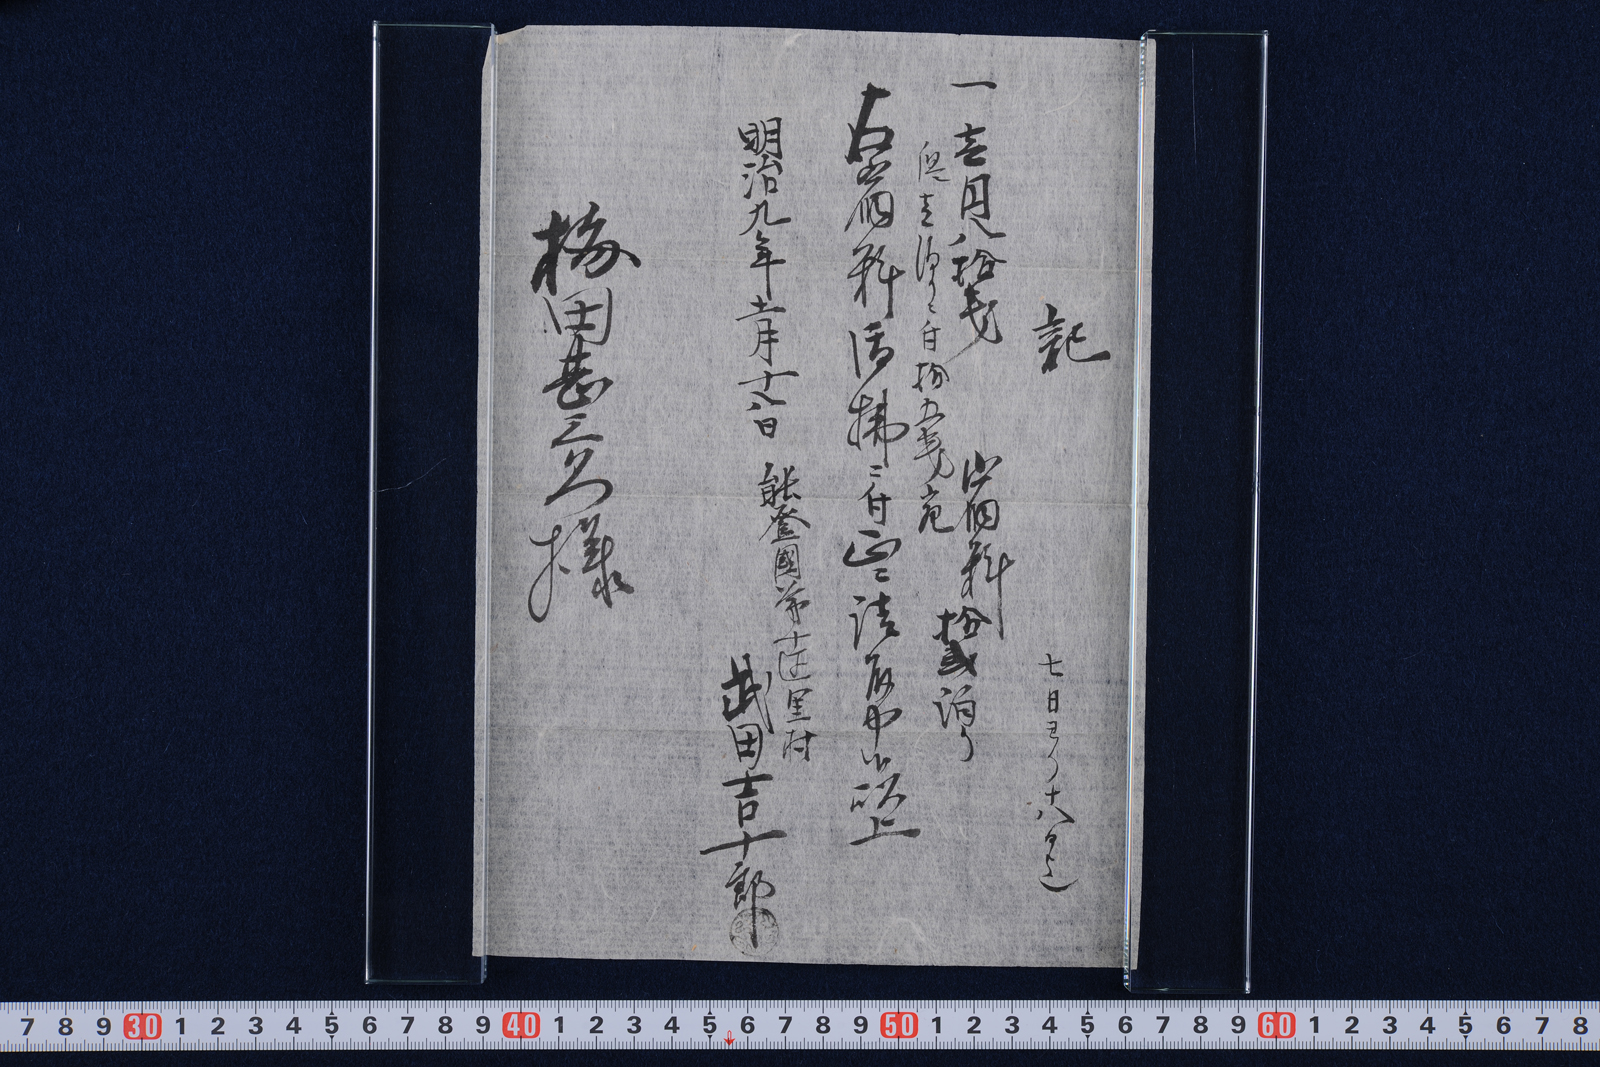 記
七日ゟ十八日迄
一壱円八拾銭 御宿料 拾弐泊り
但壱泊りニ付拾五銭宛
右御宿料御払ニ付正ニ請取申候以上
明治九年十一月十八日
能登國第十区里村
武田吉十郎
梅田甚三久様
7 8 9 30 1 2 3 4 5 6 7 8 9 40 1 2 3 4 5 6 7 8 9 50 1 2 3 4 5 6 7 8 9 60 1 2 3 4 5 6 7 8